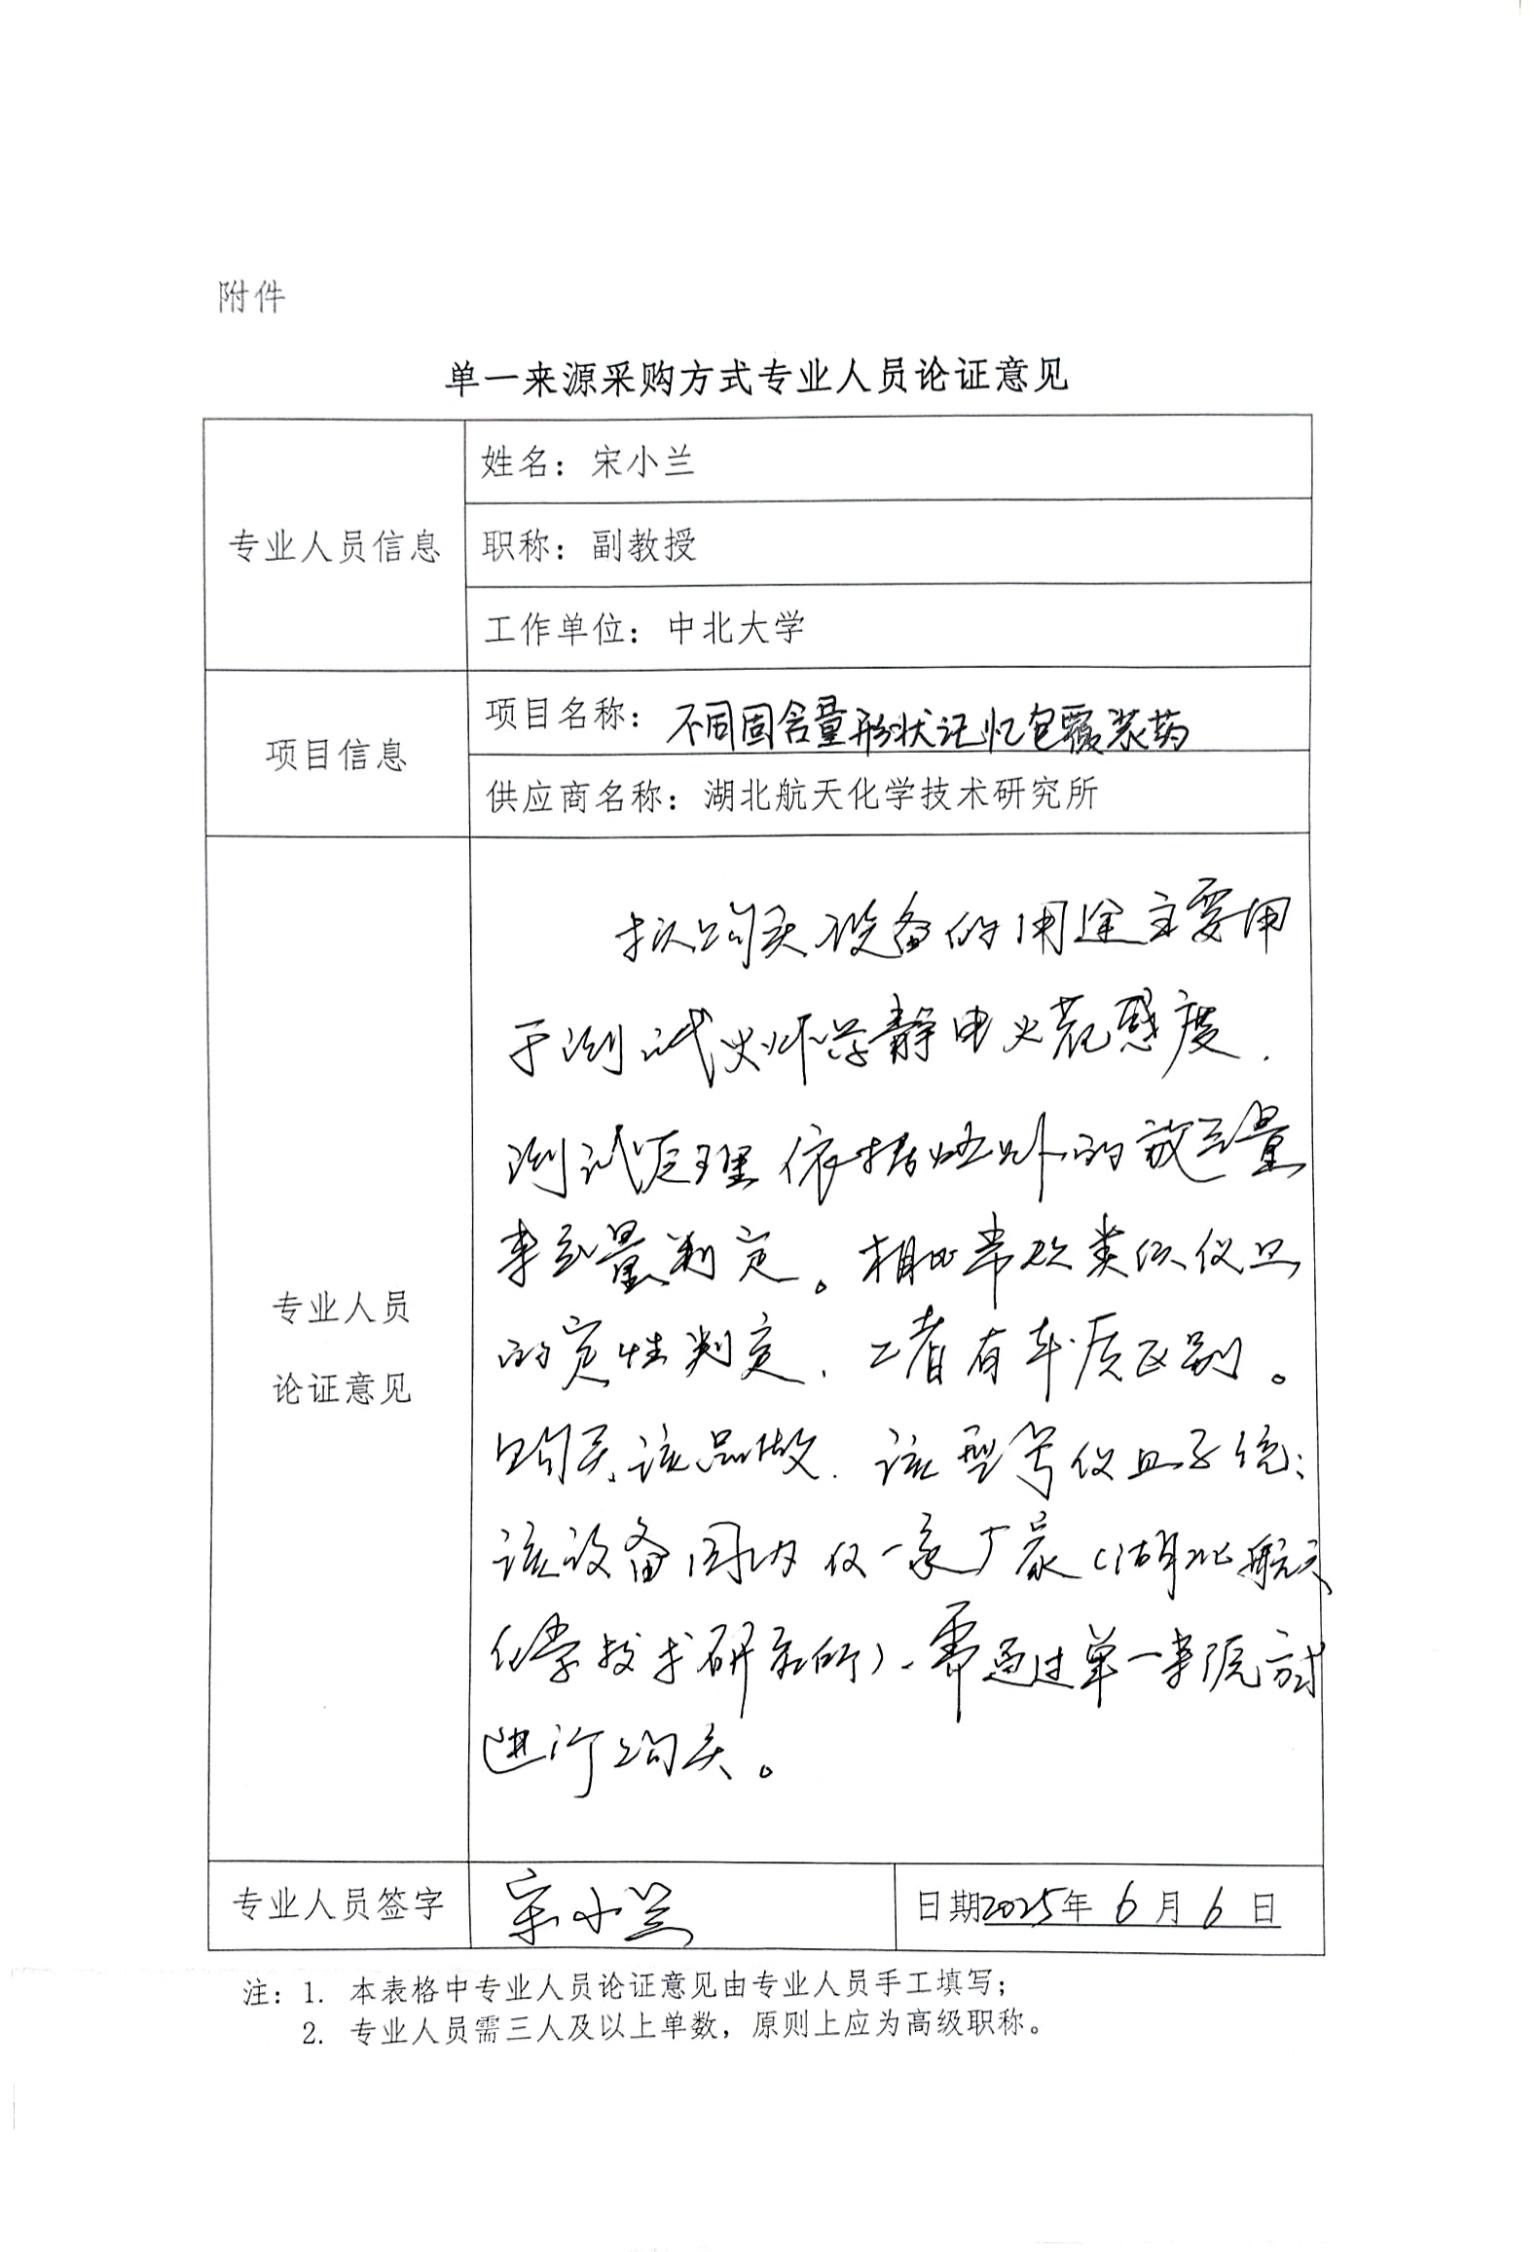 附件
单一来源采购方式专业人员论证意见
专业人员信息
姓名：宋小兰
职称：副教授
工作单位：中北大学
项目信息
项目名称：不同固含量形状记忆包覆装药
供应商名称：湖北航天化学技术研究所
专业人员
论证意见
拟购买设备的用途主要用
于测试火炸药静电火花感度．
测试原理依据 的放 量
来 量判定。相比常规类似仪器
的定性判定，二者有本质区别。
购买该 ，该型号仪器 ；
该设备国内仅一家厂家（湖北航天
化学技术研究所），需通过单一来源方式
进行购买。
专业人员签字
宋小兰
日期2025年6月6日
注：1. 本表格中专业人员论证意见由专业人员手工填写；
2. 专业人员需三人及以上单数，原则上应为高级职称。